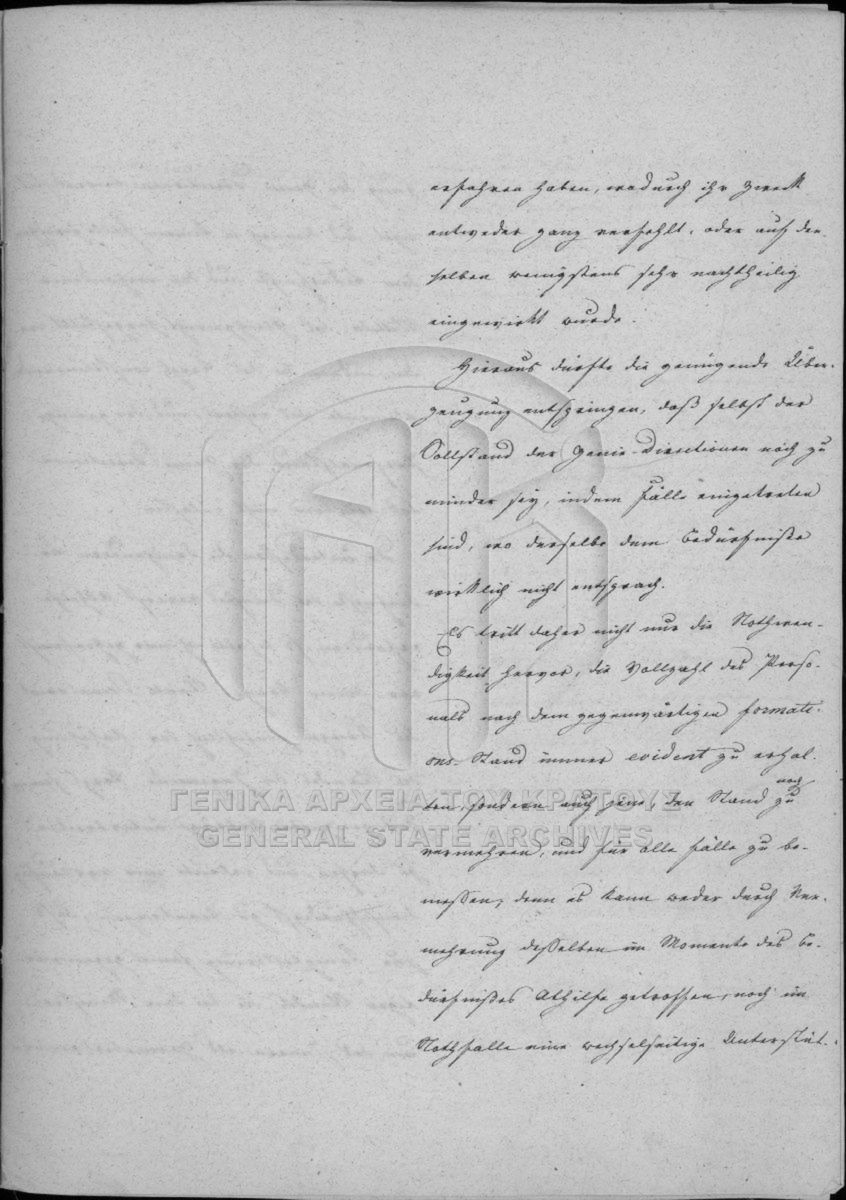 erfahren haben, wodurch ihr Zweck
entweder ganz verfehlt, oder auf den-
selben wenigstens sehr nachtheilig
eingewirkt wurde.
Hieraus dürfte die genügende Über-
zeugung entspringen, daß selbst der
Sollstand der Genie-Direktionen noch zu
minder sey, indem Fälle eingetreten
sind, wo derselbe dem Bedürfniße
wirklich nicht entsprach.
Es tritt daher nicht nur die Nothwen-
digkeit hervor, die Vollzahl des Perso-
nals nach dem gegenwärtigen formati-
ons-Stand immer evident zu erhal-
ΓΕΝΙΚΑ ΑΡΧΕΙΑ ΤΟΥ ΚΡΑΤΟΥΣ
ten, sondern auch jene, den Stand noch zu
GENERAL STATE ARCHIVES
vermehren, und für alle Fälle zu be-
messen; denn es kann weder durch Ver-
mehrung desselben im Momente des Be-
dürfnißes Abhilfe getroffen, noch im
Nothfalle eine wechselseitige Unterstüt-